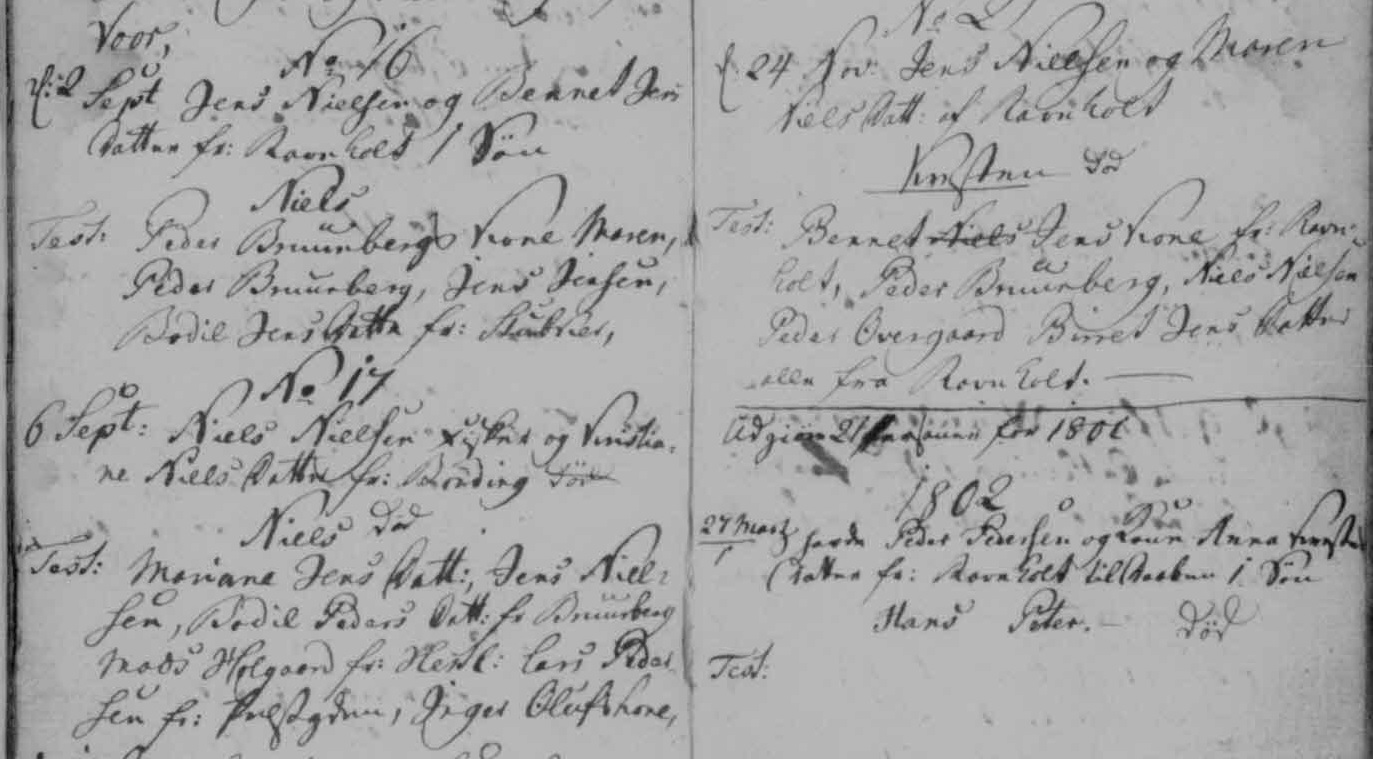 Voor,
No 16
d: 2 Sept Jens Nielsen og Bennet Jens
Datter fr: Ravnholt 1 Søn
Niels
Test: Peder Bruunbergs Kone Maren,
Peder Bruunberg, Jens Jensen,
Bodil Jens Datter fr:
No 17
6 Sept: Niels Nielsen Fisker og Kirstia-
ne Niels Datter fr: Rønding død
Niels død
Test: Mariane Jens Datt:, Jens Niel-
sen, Bodil Peders Datt: fr Bruunberg
Mads Holgaard fr: Lars Peder
sen fr: Præstgden, Inger Olufs kone,
No 2
d 24 Nov: Jens Nielsen og Maren
Niels Datt: af Ravnholt
Kirsten død
Test: Bennet Niels Jens Kone fr: Ravn-
holt, Peder Bruunberg, Niels Nielsen
Peder Overgaard Birret Jens Datter
alle fra Ravnholt.
21 for 1801
1802
27 Martz havde Peder Pedersen og Koun Anna Kirsten
Datter fr: Ravnholt til Daaben 1 Søn
Hans Peter. død
Test: